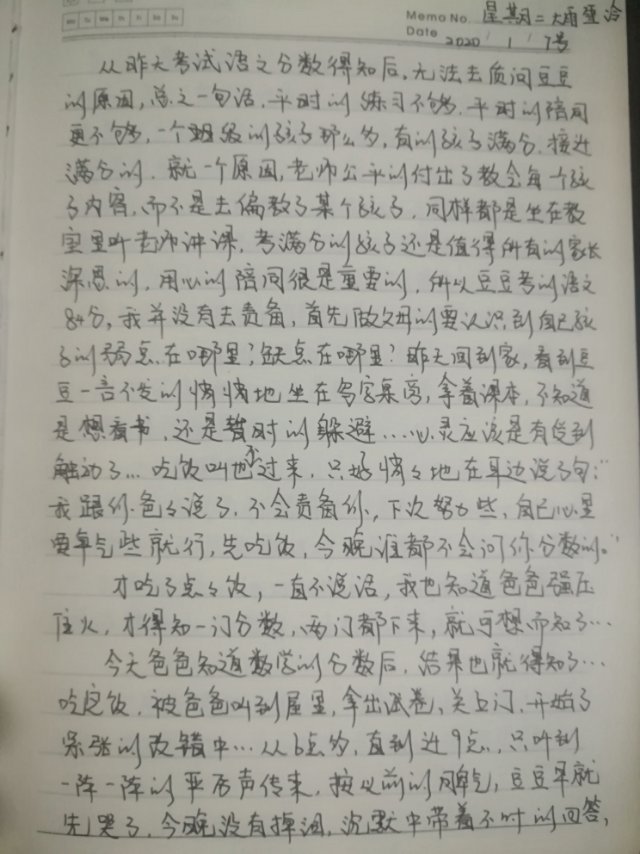 Mo Tu We Th Fr Sa Su
Memo No. 星期二 大雨 亚冷
Date 2020 / 1 / 7号
从昨天考试语文分数得知后,无法去质问豆豆
的原因,总之一句话,平时的练习不够,平时的陪同
更不够,一个班级的孩子那么多,有的孩子满分,接近
满分的,就一个原因,老师公平的付出了教会每个孩
子内容,而不是去偏教了某个孩子,同样都是坐在教
室里听老师讲课,考满分的孩子还是值得所有的家长
深思的,用心的陪同很是重要的,所以豆豆考的语文
84分,我并没有去责备,首先做父母的要认识到自己孩
子的弱点在哪里?缺点在哪里?昨天回到家,看到豆
豆一言不发的悄悄地坐在写字桌旁,拿着课本,不知道
是想看书,还是暂时的躲避……心灵应该是有受到
触动了…吃饭叫他不过来,只好悄々地在耳边说了句:“
我跟你爸々说了,不会责备你,下次努力些,自己心里
要争气些就行,先吃饭,今晚谁都不会问你分数的。”
才吃了点々饭,一直不说话,我也知道爸爸强压
住火,才得知一门分数,两门都下来,就可想而知了…
今天爸爸知道数学的分数后,结果也就得知了…
吃完饭,被爸爸叫到屋里,拿出试卷,关上门,开始了
紧张的改错中…从6点多,直到近9点,只听到
一阵一阵的严厉声传来,按以前的脾气,豆豆早就
先哭了,今晚没有掉泪,沉默中带着不时的回答,